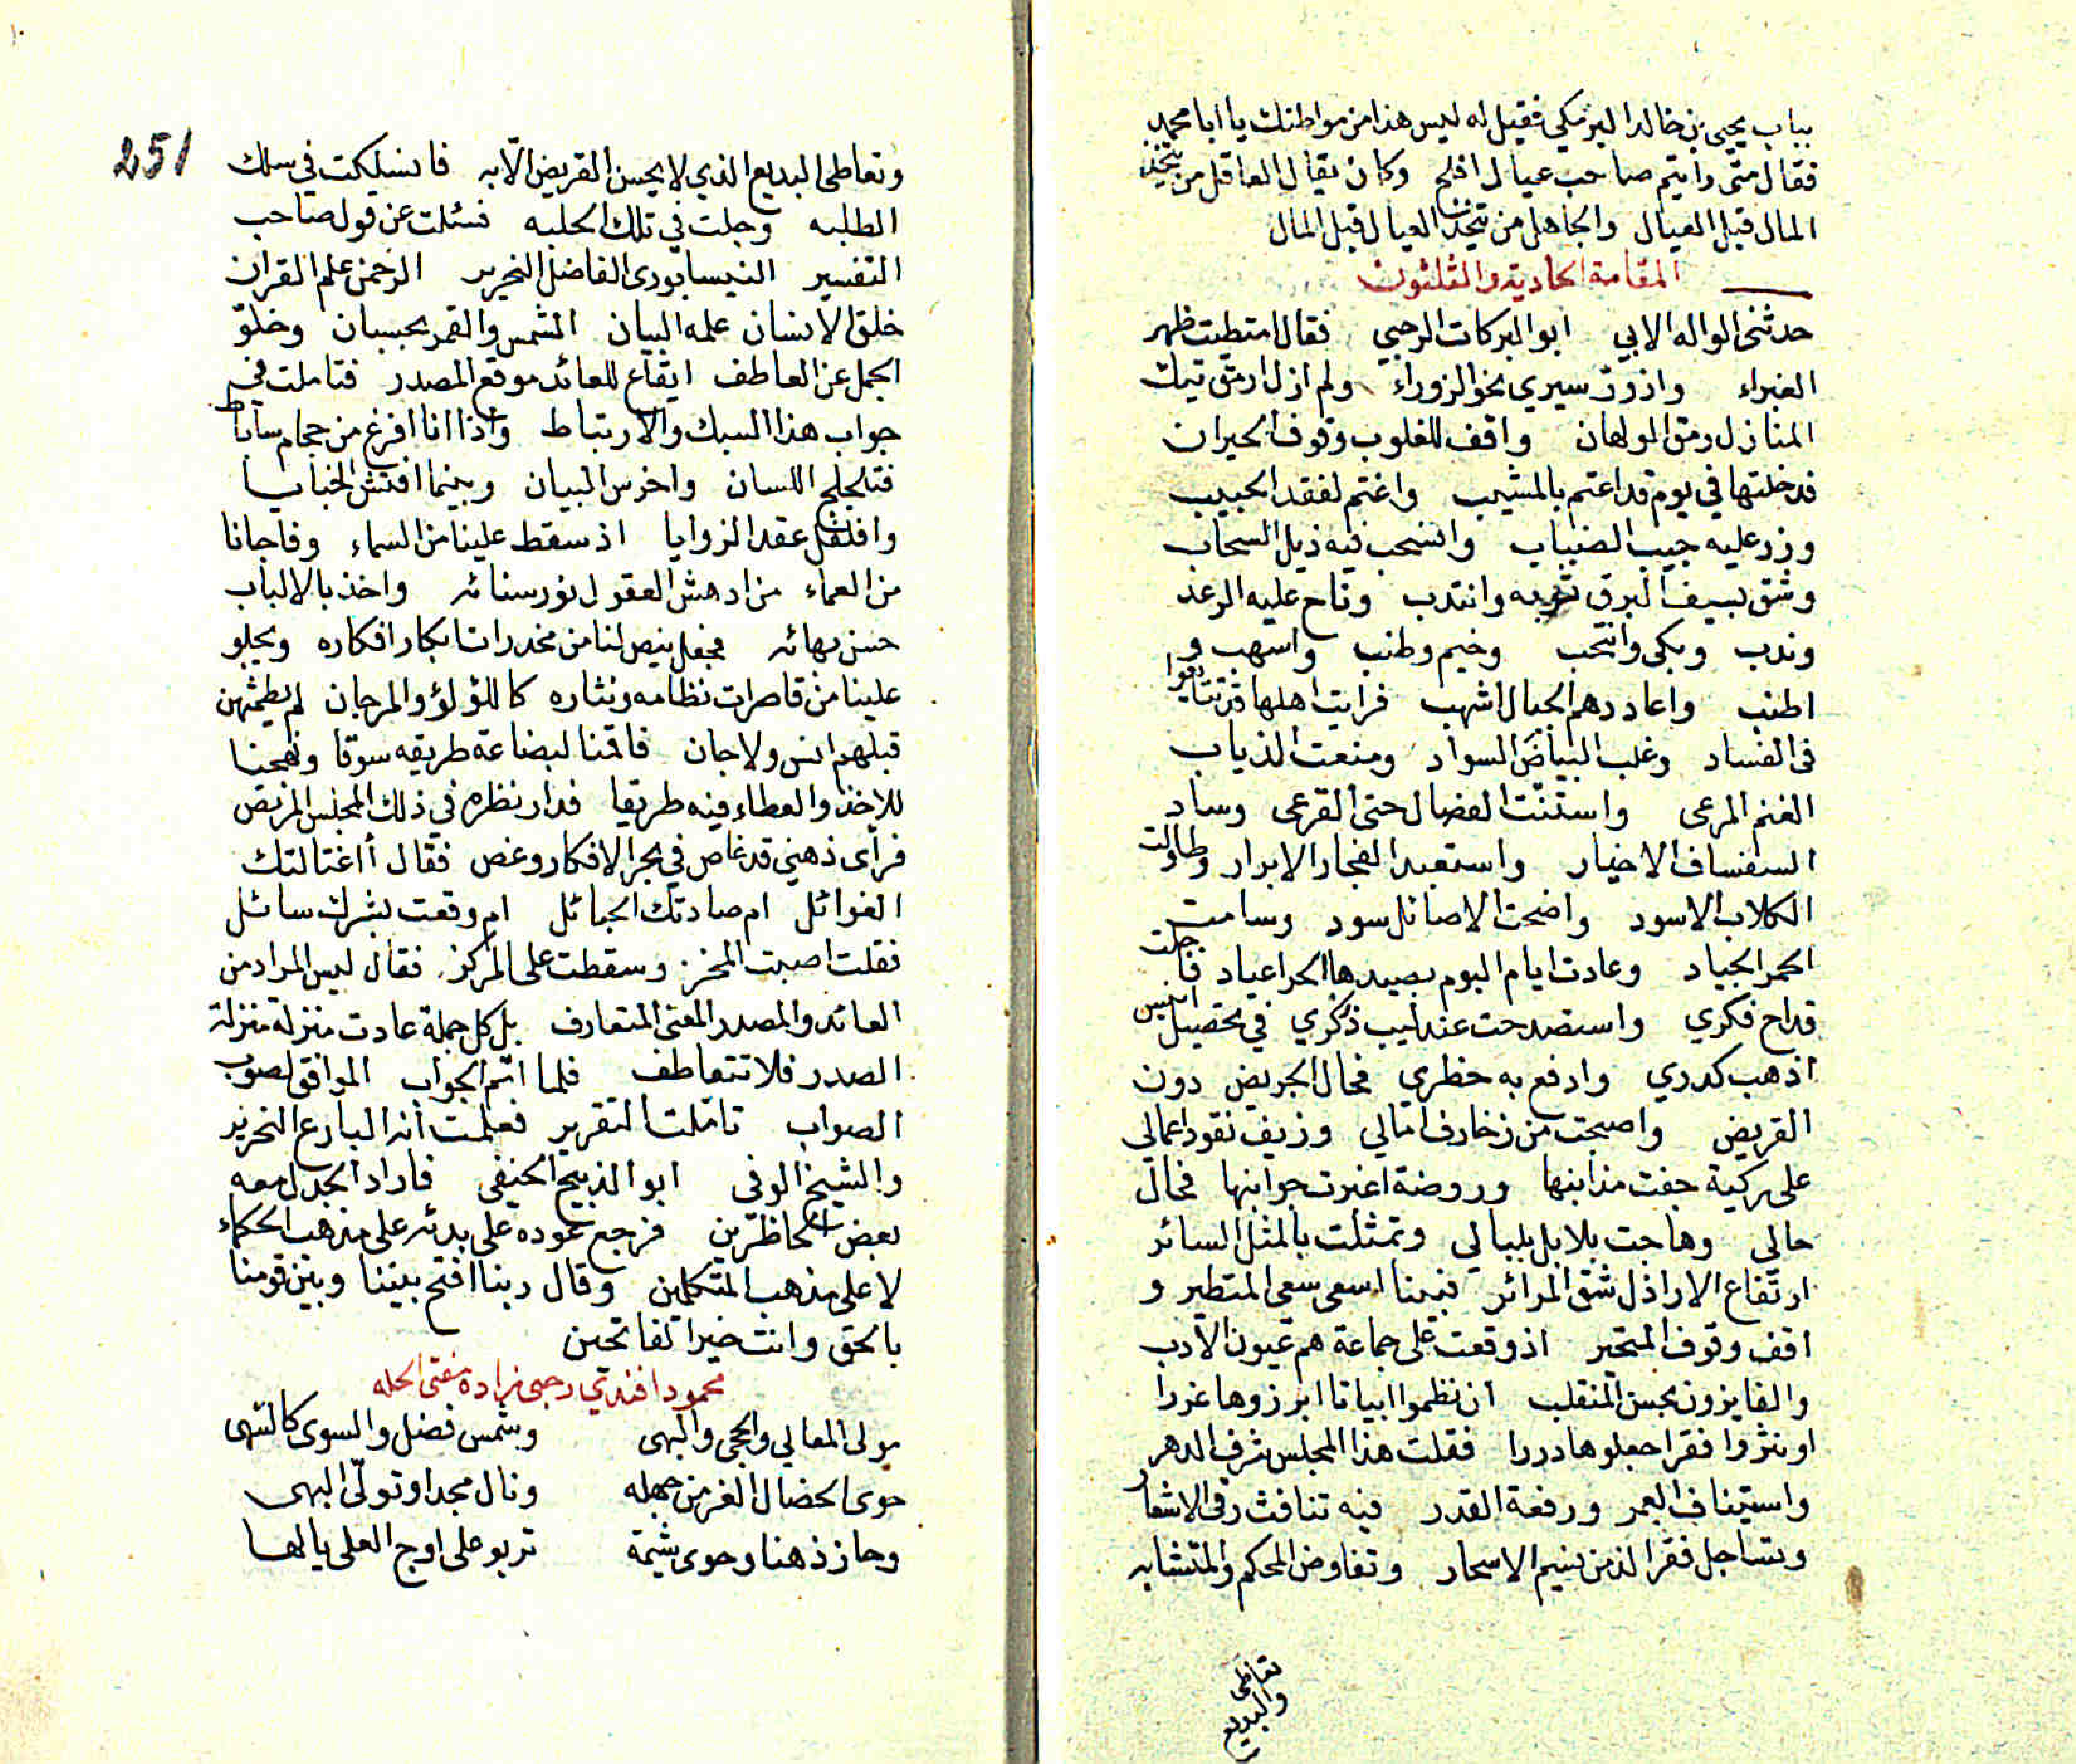 بباب يحيى بن خالد البرمكي فقيل له ليس هذا من مواطنك يا ابا محمد
فقال متى رايتم صاحب عيال افلح وكان يقال العاقل من يتخذ
المال قبل العيال والجاهل من يتخذ العيال قبل المال
المقامة الحادية والثلثون
حدثنى الواله الابي ابو البركات الرحبي فقال امتطيت ظهر
الغبراء وازور سيري نحو الزوراء ولم ازل ارمق تيك
المنازل رمق الولهان واقف للغلوب وقوف الحيران
فدخلتها في يوم قد اعتم بالمشيب واغتم لفقد الحبيب
وزر عليه جيب الضباب وانسحب فيه ذيل السحاب
وشق بسيف البرق ثوبه وانتدب وناح عليه الرعد
وندب وبكى وانتحب وخيم وطنب واسهب و
اطنب واعاد دهم الجبال اشهب فرايت اهلها قد تتايعوا
فى الفساد وغلب البياض السواد ومنعت الذياب
الغنم المرعى واستنّت الفصال حتى القرعى وساد
السفساف الاخيار واستعبد الفجار الابرار وطاولت
الكلاب الاسود واضحت الاصائل سود وسامت
الحمر الجياد وعادت ايام البوم بصيدها الحر اعياد فاجلت
قداح فكري واستصدحت عندليب ذكري في تحصيل انيس
اذهب كدري وادفع به خطري فحال الجريض دون
القريض واصبحت من زخارف امالي وزيف نقود اعمالي
على ركية جفت مذانبها وروضة اغبرت جوانبها فحال
حالي وهاجت بلابل بلبالي وتمثلت بالمثل السائر
ارتفاع الاراذل شق المرائر فبينا اسعى سعى المتطير و
اقف وقوف المتحير اذ وقعت على جماعة هم عيون الادب
والفايزون بحسن المنقلب ان نظموا ابياتا ابرزوها غررا
او نثروا فقرا جعلوها دررا فقلت هذا المجلس شرف الدهر
واستيناف العمر ورفعة القدر فيه تنافث رقى الاشعار
وتساجل فقر الذ من نسيم الاسحار وتفاوض المحكم والمتشابه
تعاطى
والبديع
251
وتعاطى البديع الذي لا يحسن القريض الّا به فانسلكت في سلك
الطلبه وجلت في تلك الحلبه فسئلت عن قول صاحب
التفسير النيسابورى الفاضل النحرير الرحمن علم القران
خلق الانسان علمه البيان الشمس والقمر بحسبان وخلوّ
الجمل عن العاطف ايقاع للعائد موقع المصدر فتاملت في
جواب هذا السبك والارتباط واذا انا افرغ من حجام ساباط
فتلجلج اللسان واخرس البيان وبينما افتش الخبايا
وافلفل عقد الزوايا اذ سقط علينا من السماء وفاجانا
من العماء من ادهش العقول نور سنائه واخذ بالالباب
حسن بهائه فجعل ينص لنا من مخدرات ابكار افكاره ويجلو
علينا من قاصرات نظامه ونثاره كاللؤلؤ والمرجان لم يطمثهن
قبلهم انس ولا جان فاقمنا لبضاعة طريقه سوقا ونهجنا
للاخذ والعطاء فيه طريقا فدار نظره في ذلك المجلس المريض
فرأى ذهني قد غاص في بحر الافكار وغص فقال أاغتالتك
الغوائل ام صادتك الحبائل ام وقعت بشرك سائل
فقلت اصبت المحز وسقطت على المركز فقال ليس المراد من
العائد والمصدر المعنى المتعارف بل كل جملة عادت منزلة منزلة
الصدر فلا تتعاطف فلما اتم الجواب الموافق لصوب
الصواب تاملت التقرير فعلمت انه البارع النحرير
والشيخ الوفي ابو الذبيح الحنيفى فاراد الجدل معه
بعض الحاظرين فرجع عوده على بدئه على مذهب الحكماء
لا على مذهب المتكلمين وقال ربنا افتح بيننا وبين قومنا
بالحق وانت خير الفاتحين
محمود افندي رحبى زاده مفتى الحله
مولى المعالي والحجى والنهى وشمس فضل والسوى كالسهى
حوى الخصال الغر من جهله ونال مجدا وتولّى البهى
وحاز ذهنا وحوى شيمة تربو على اوج العلى يا لها